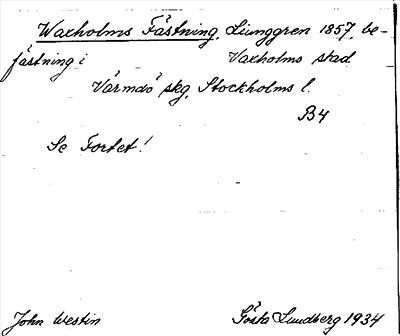 Waxholms Fästning, Ljunggren 1857, be-
fästning i Vaxholms stad
Värmdö skg, Stockholms l.
B4
Se Fortet!
John Westin Gösta Lundberg 1934